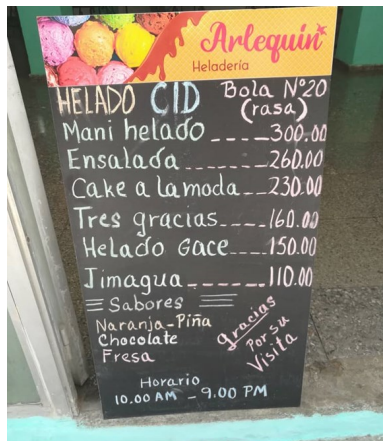 Arlequin
Heladería
HELADO CID Bola Nº20
(rasa)
Mani helado ---- 300.00
Ensalada ------- 260.00
Cake a la moda --- 230.00
Tres gracias ---- 160.00
Helado Gace ---- 150.00
Jimagua ------ 110.00
Sabores
Naranja-Piña
Chocolate
Fresa
gracias
Por su
Visita
Horario
10.00 AM - 9.00 PM